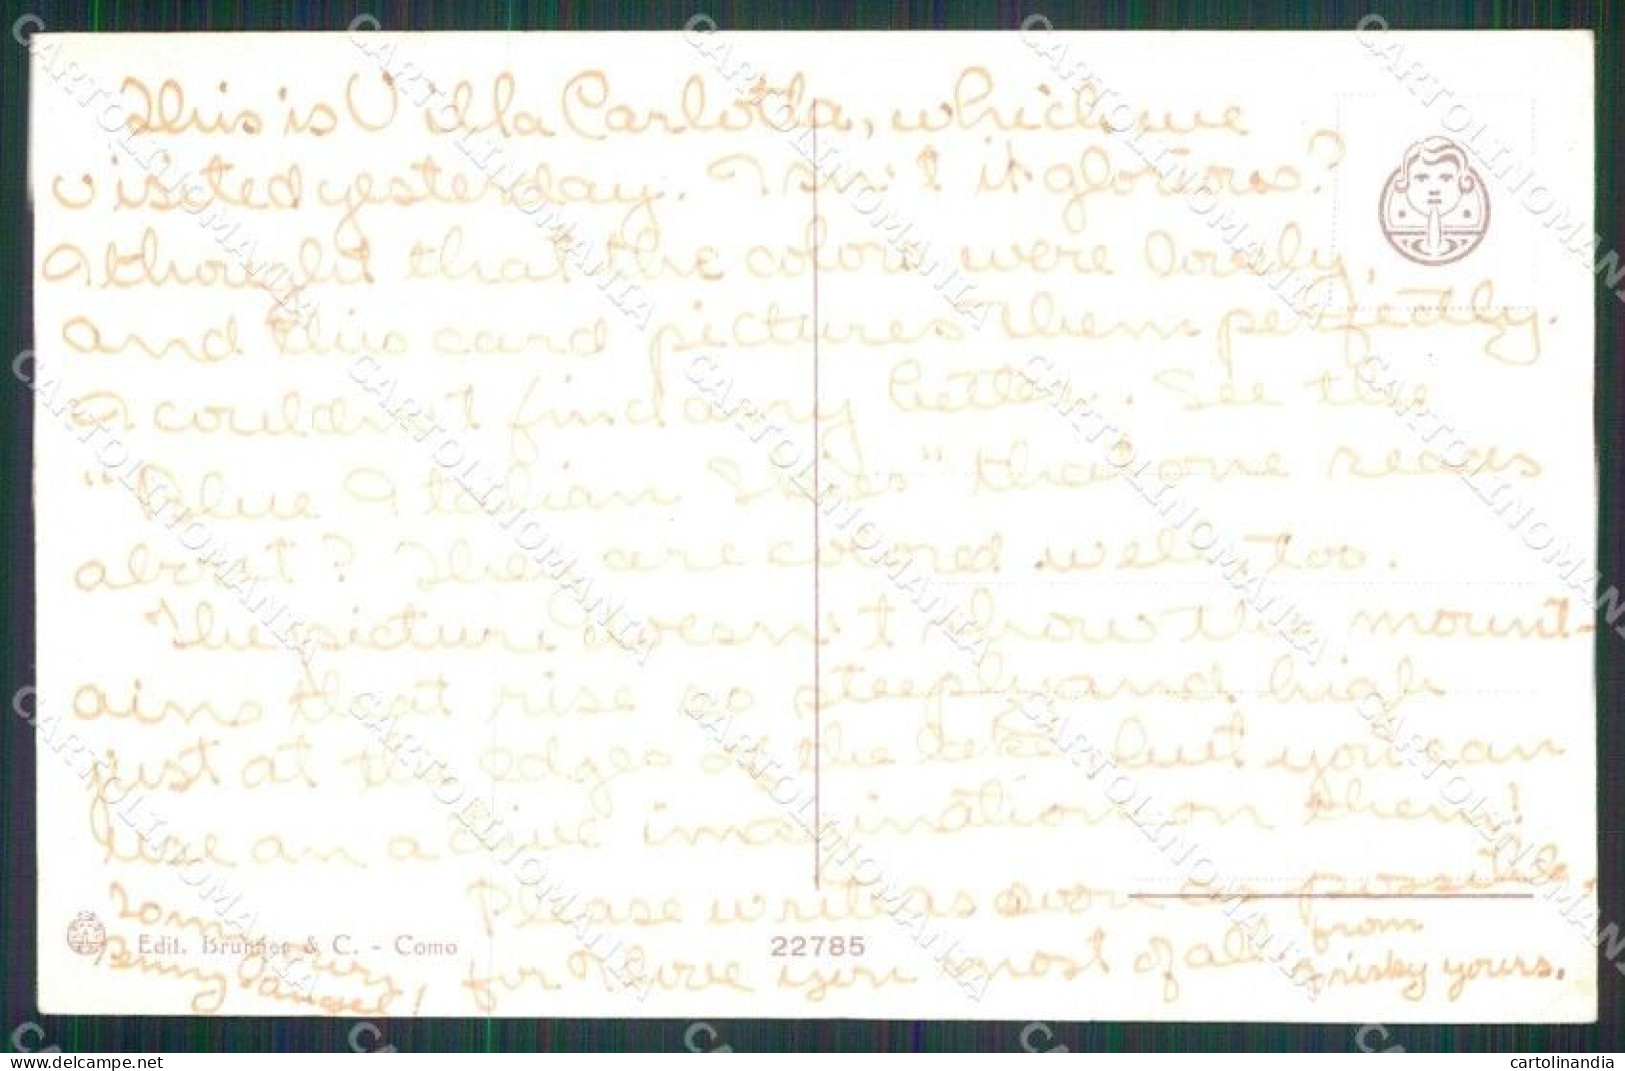 This is Villa Carlotta, which we
visited yesterday. Isn't it glorious?
I thought that the colors were lovely,
and this card pictures them perfectly.
I couldn't find any better. See the
"Blue Italian Skies" that one reads
about? They are colored well, too.
The picture doesn't show the mount-
ains that rise so steeply and high
just at the edges of the lake but you can
use an active imagination on them!
Please write as soon as possible.
for I love you most of all from
Frisky yours.
Penny angel!
Edit. Brunner & C. - Como
22785
CARTOLINOMANIA
delcampe.net
cartolinandia